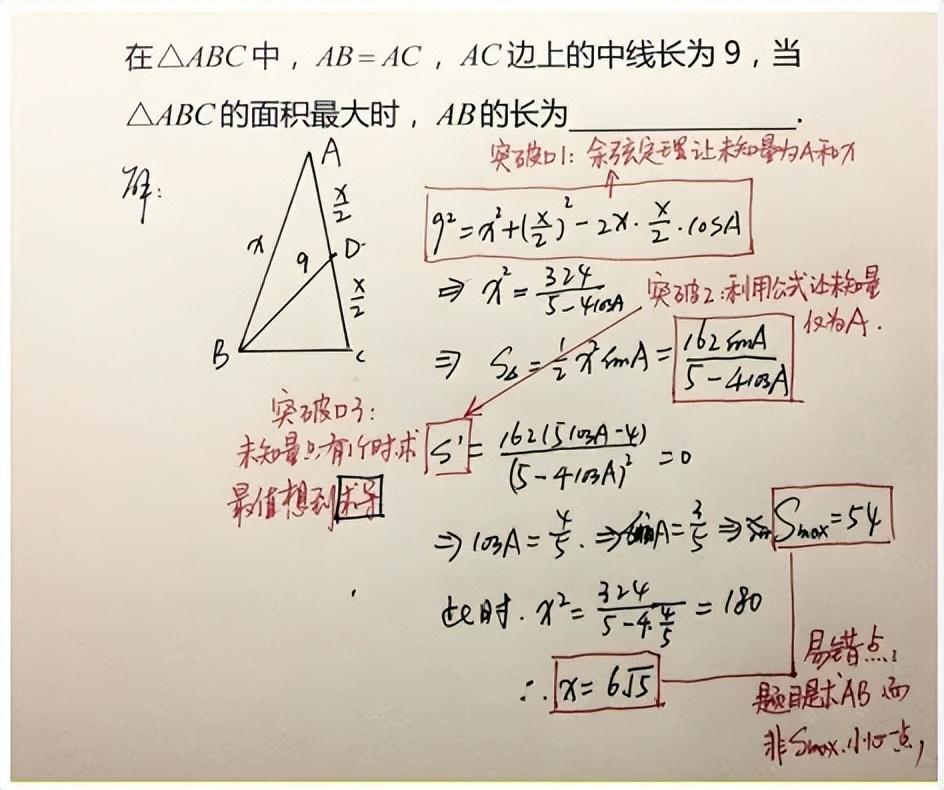 在△ABC中，AB=AC，AC边上的中线长为9，当
△ABC的面积最大时，AB的长为____________.
突破口1：余弦定理让未知量为A和x
解：
A
x/2
x
9
D
x/2
B
C
9²=x²+(x/2)²-2x·x/2·cosA
⇒ x²=324/(5-4cosA)
突破2：利用公式让未知量
仅为A.
⇒ S△=1/2x²sinA=162sinA/(5-4cosA)
突破口3：
未知量只有1个时求
最值想到求导
S'=162(5cosA-4)/(5-4cosA)²=0
⇒cosA=4/5.⇒sinA=3/5⇒Smax=54
此时.x²=324/(5-4·4/5)=180
∴x=6√5
易错点：
题目是求AB而
非Smax.小心一点，